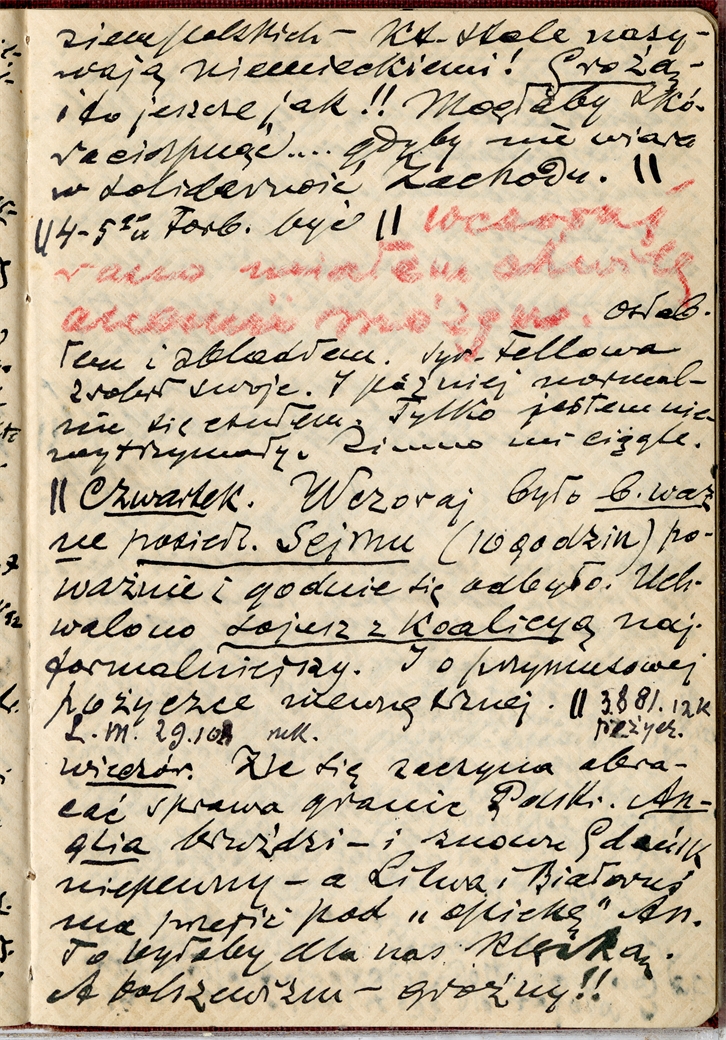 ziem polskich – kt. stale nazy-
wają niemieckiemi! Grożą –
i to jeszcze jak!! Mogłaby skó-
ra cierpnąć.... gdyby nie wiara
w solidarność Zachodu. ||
|| 4-5 u Torb. być || wczoraj
rano miałem chwilę
anemii mózgu. Osłab-
łem i zbladłem.
zrobił swoje. I później normal-
nie się czułem. Tylko jestem nie
wytrzymały. Zimno mi ciągle.
|| Czwartek. Wczoraj było b. waż
ne posiedz. Sejmu (10 godzin) po-
ważnie i godnie się odbyło. Uch-
walono sojusz z Koalicyą naj-
formalniejszy. I o przymusowej
pożyczce wewnętrznej. || 3881.12K
L. M. 29.108 mk. pożycz.
wieczór. Źle się zaczyna obra-
cać sprawa granic Polski. An-
glia bruździ – i znowu Gdańsk
niepewny – a Litwa i Białoruś
ma przejść pod „opiekę" An.
To byłaby dla nas klęska.
A bolszewizm – groźny!!